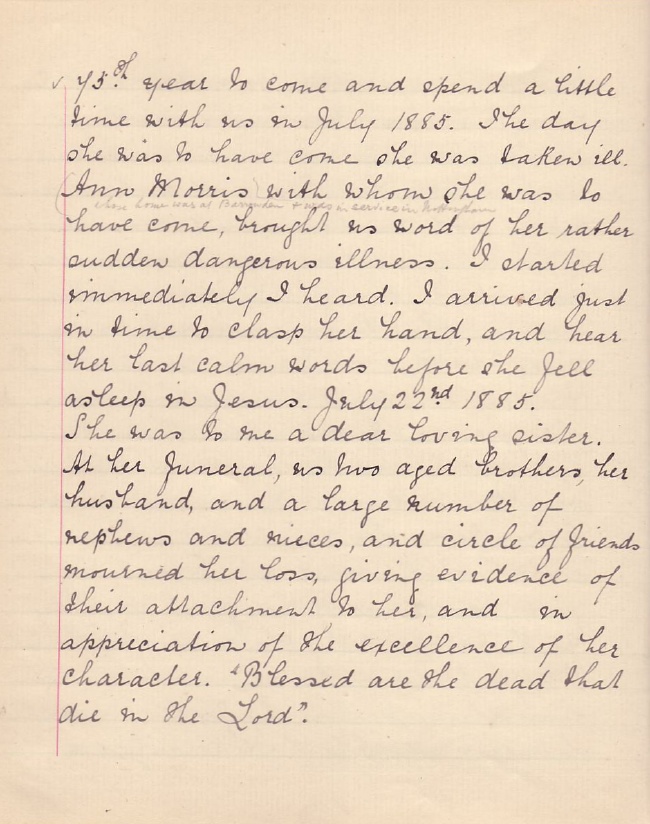 ✓ 75th year to come and spend a little
time with us in July 1885. The day
she was to have come she was taken ill.
(Ann Morris) with whom she was to
whose home was at Bessenden + was in service in Nottingham
have come, brought us word of her rather
sudden dangerous illness. I started
immediately I heard. I arrived just
in time to clasp her hand, and hear
her last calm words before she fell
asleep in Jesus. July 22nd 1885.
She was to me a dear loving sister.
At her funeral, us two aged brothers, her
husband, and a large number of
nephews and nieces, and circle of friends
mourned her loss, giving evidence of
their attachment to her, and in
appreciation of the excellence of her
character. "Blessed are the dead that
die in the Lord".